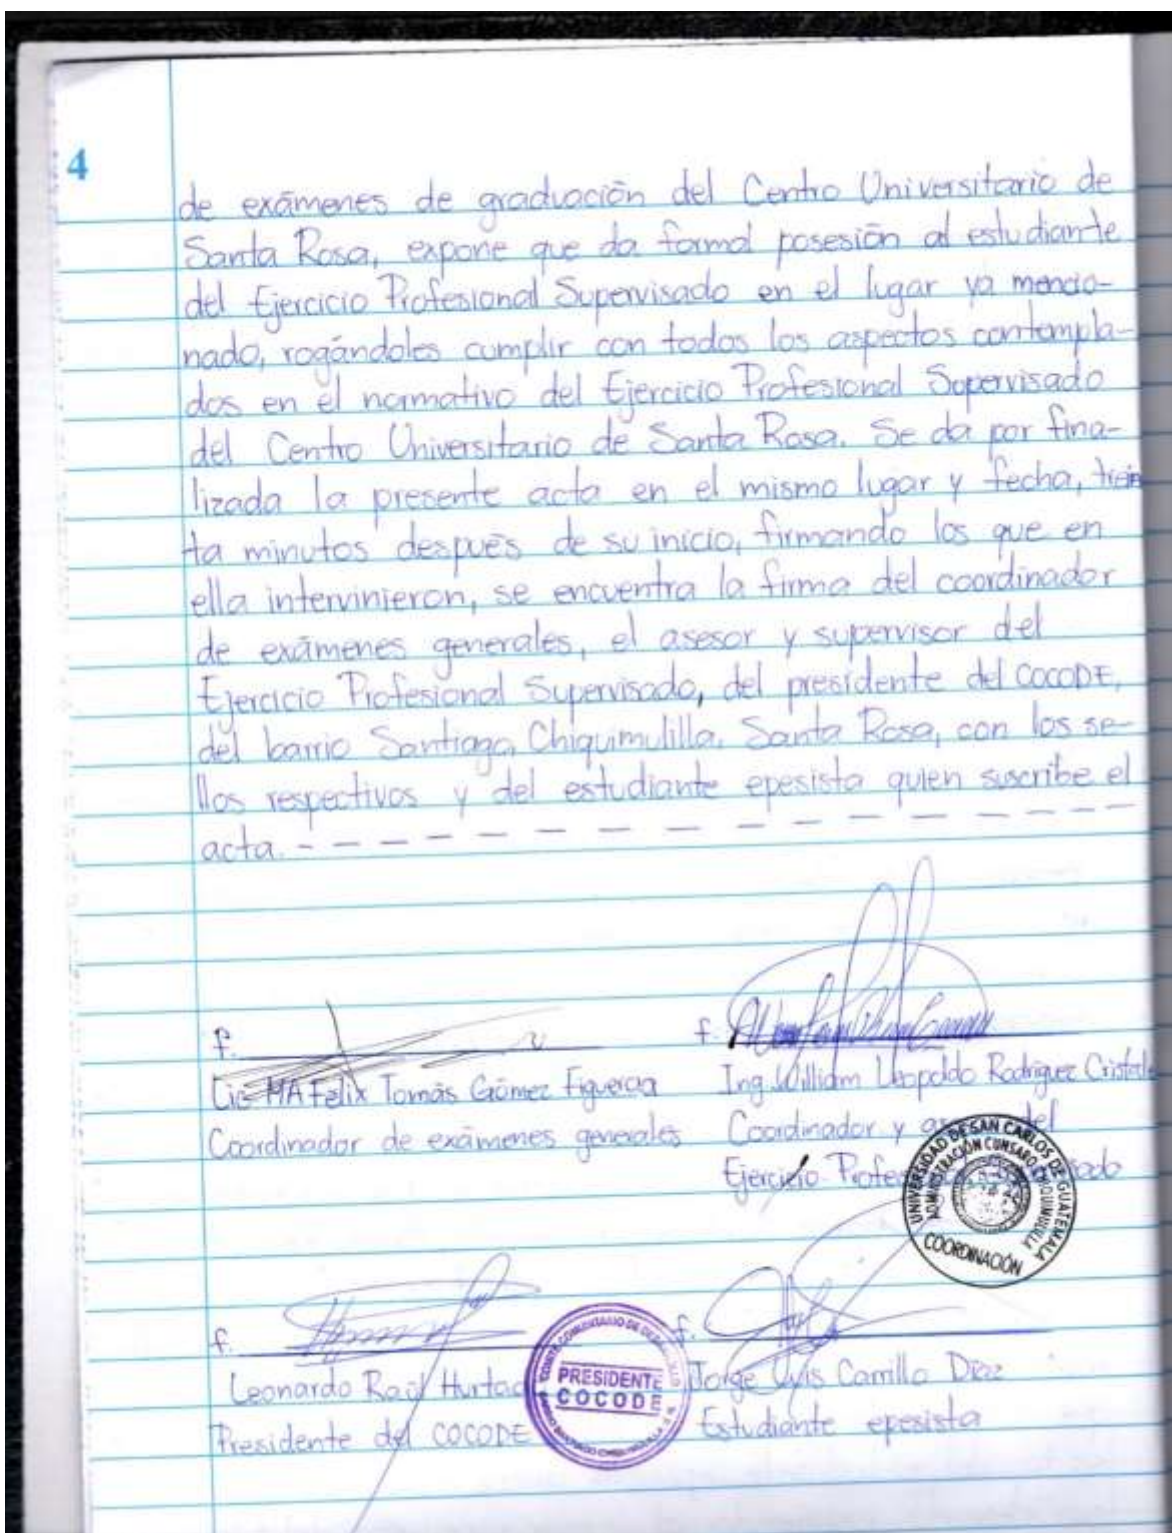 4
de exámenes de graduación del Centro Universitario de
Santa Rosa, expone que da formal posesión al estudiante
del Ejercicio Profesional Supervisado en el lugar ya mencio-
nado, rogándoles cumplir con todos los aspectos contempla-
dos en el normativo del Ejercicio Profesional Supervisado
del Centro Universitario de Santa Rosa. Se da por fina-
lizada la presente acta en el mismo lugar y fecha, trein
ta minutos después de su inicio, firmando los que en
ella intervinieron, se encuentra la firma del coordinador
de exámenes generales, el asesor y supervisor del
Ejercicio Profesional Supervisado, del presidente del COCODE,
del barrio Santiago, Chiquimulilla, Santa Rosa, con los se-
llos respectivos y del estudiante epesista quien suscribe el
acta. - - - - - - - - - - - - - - -
f.
Lic. MA Felix Tomás Gómez Figueroa
Coordinador de exámenes generales
f.
Ing. William Leopoldo Rodríguez
Coordinador y del
Ejercicio
UNIVERSIDAD DE SAN CARLOS DE GUATEMALA
ADMINISTRACIÓN CUNSARO CHIQUIMULILLA
COORDINACIÓN
f.
Leonardo Raúl
Presidente del COCODE
PRESIDENTE
COCODE
f.
Jorge Luis Carrillo Díaz
Estudiante epesista